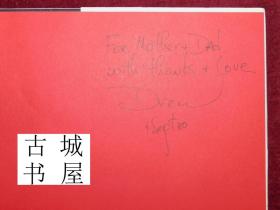 For Mother + DAD
with thanks + Love
Drew
Sept 20
古城
书屋